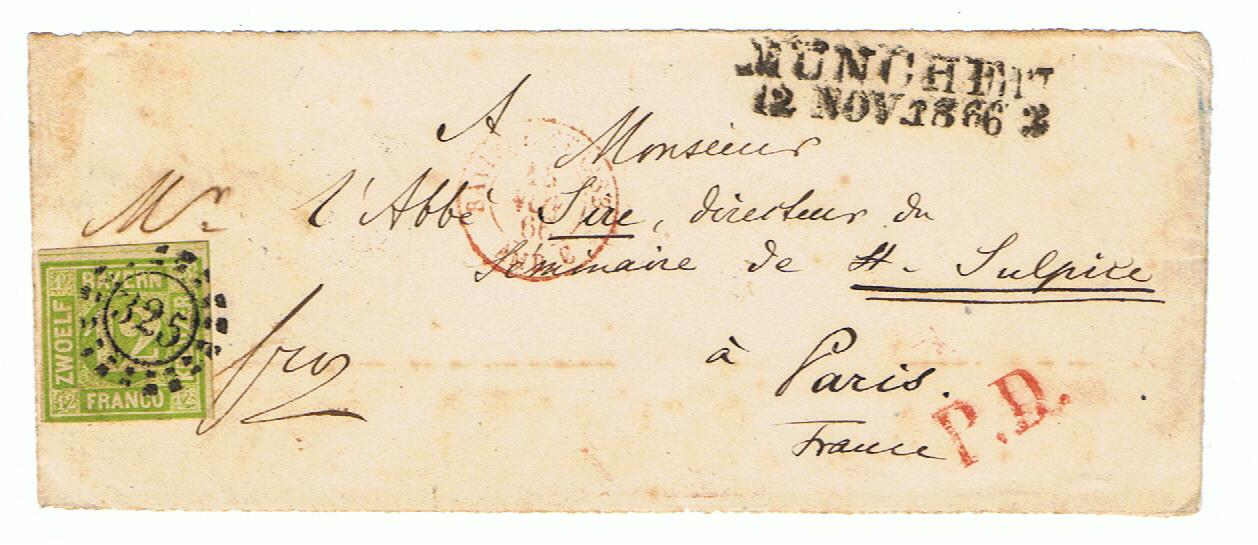 MÜNCHEN
12 NOV. 1866 3
A
Monsieur
Mr l'Abbé Sire, directeur du
Séminaire de St. Sulpice
à Paris.
France
P.D.
BAYERN
ZWOELF
FRANCO
12 12
325
fro
66